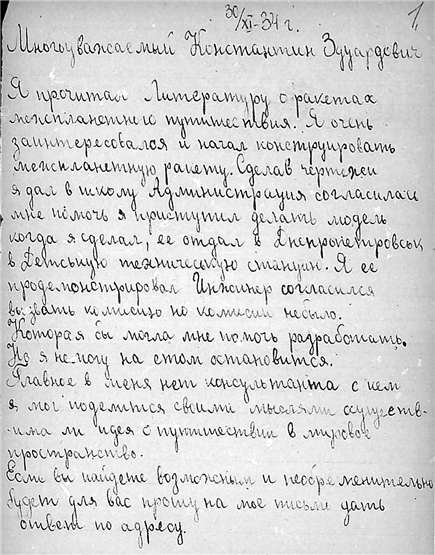 30/XI-34 г.
1
Многоуважаемый Константин Эдуардович
Я прочитал Литературу о ракетах
межпланетного путишествия. Я очень
заинтересовался и начал конструировать
межпланетную ракету. Сделав чертежи
я дал в школу Администрация согласилась
мне помочь я приступил делать модель
когда я сделал, ее отдал в Днепропетровськ
в Детськую техническую станцию. Я ее
продемонстрировал Инжинер согласился
вызвать комисию но комисии небыло.
Которая бы могла мне помочь разработать.
Но я не могу на етом остановится.
Главное в меня нет консультанта с кем
я мог поделится своими мыслями осуществ-
-има ли идея о путишествии в мировое
пространство.
Если вы найдете возможным и необременительно
будет для вас прошу на мое письмо дать
ответ по адресу.